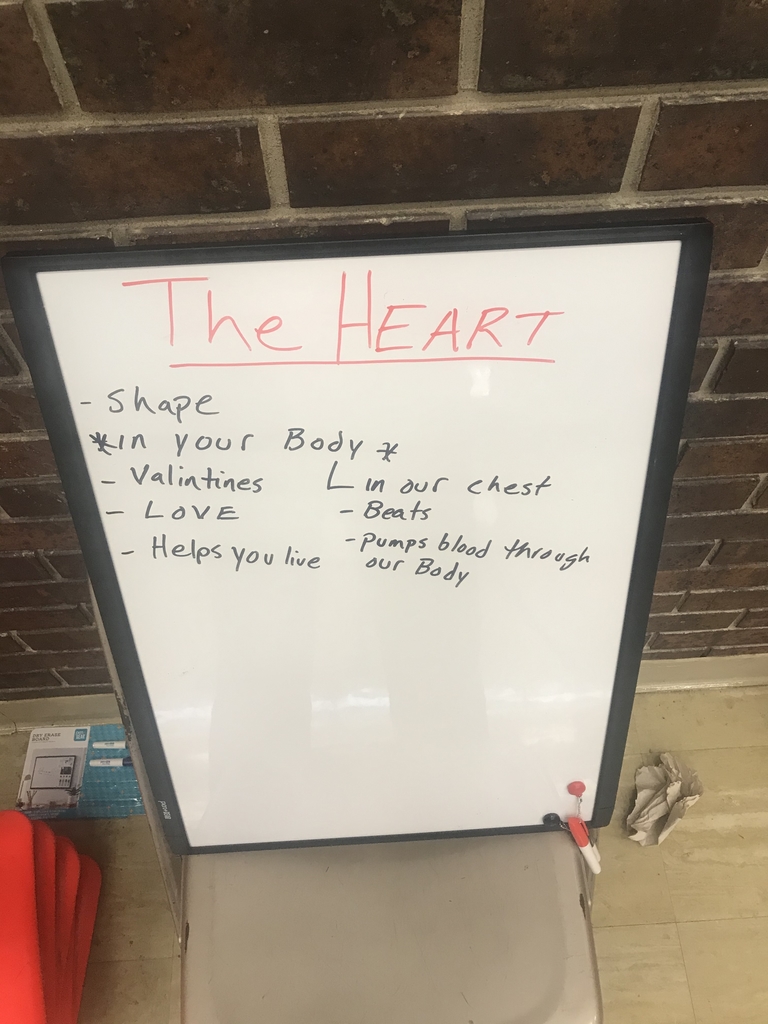 The HEART
- Shape
*in your Body *
- Valintines
- LOVE
- Helps you live
in our chest
- Beats
- Pumps blood through
our Body
DRY ERASE
BOARD